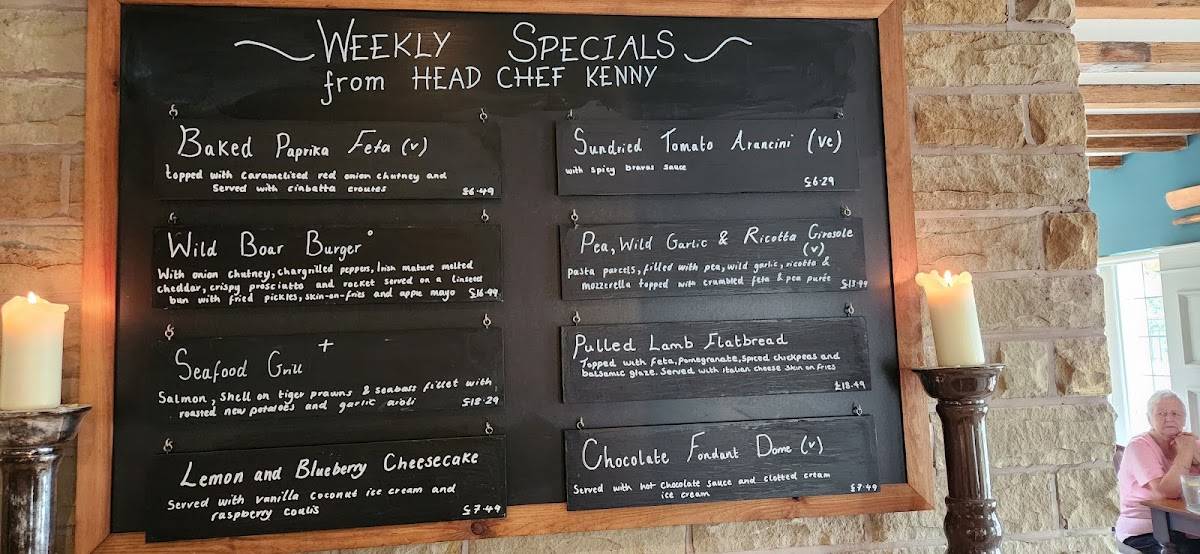 WEEKLY SPECIALS
from HEAD CHEF KENNY
Baked Paprika Feta (v)
topped with caramelised red onion chutney and
served with ciabatta croutes
£6.49
Wild Boar Burger°
With onion chutney, chargrilled peppers, Irish mature melted
cheddar, crispy prosciutto and rocket served on a linseed
bun with fried pickles, skin-on-fries and apple mayo £16.99
Seafood Grill +
Salmon, shell on tiger prawns & seabass fillet with
roasted new potatoes and garlic aioli £18.29
Lemon and Blueberry Cheesecake
Served with vanilla coconut ice cream and
raspberry coulis £7.49
Sundried Tomato Arancini (ve)
with spicy bravas sauce
£6.29
Pea, Wild Garlic & Ricotta Girasole
(v)
pasta parcels, filled with pea, wild garlic, ricotta &
mozzerella topped with crumbled feta & pea purée £13.99
Pulled Lamb Flatbread
Topped with feta, pomegranate, spiced chickpeas and
balsamic glaze. Served with italian cheese skin on fries
£18.49
Chocolate Fondant Dome (v)
Served with hot chocolate sauce and clotted cream
ice cream £7.49